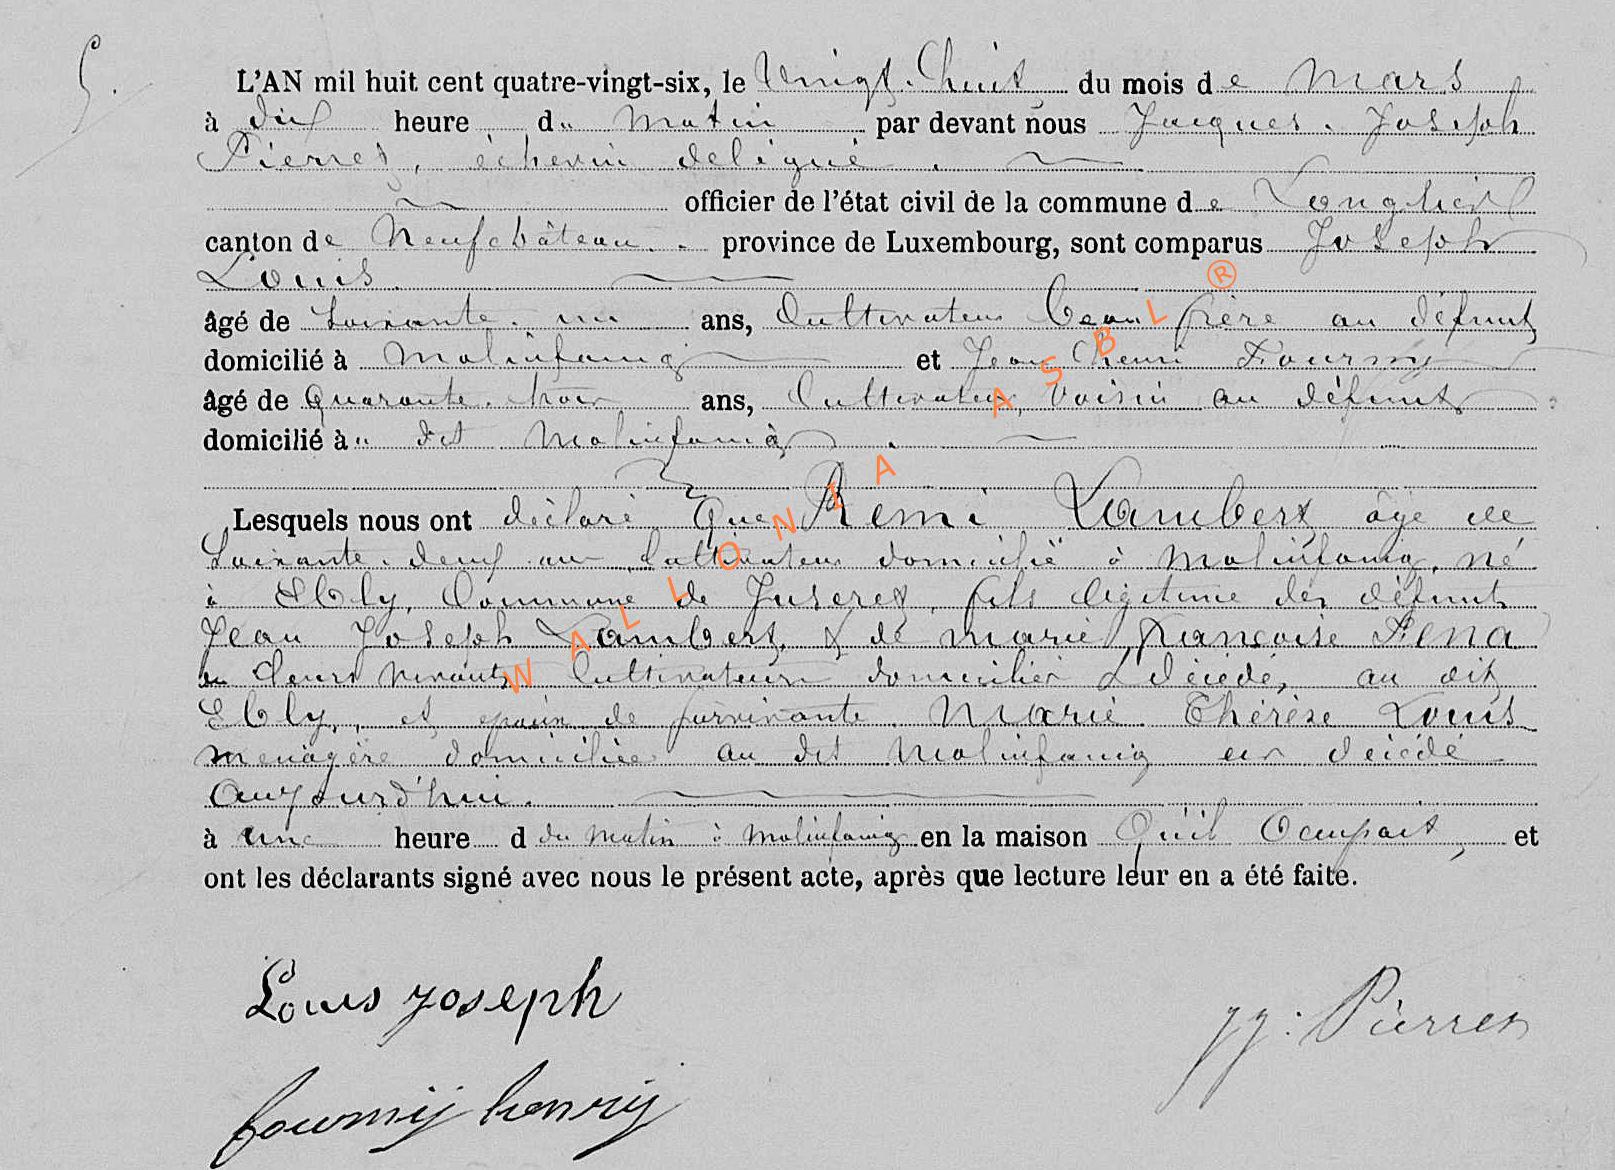 5.
L'AN mil huit cent quatre-vingt-six, le Vingt-huit du mois de Mars
à dix heure du Matin par devant nous Jacques-Joseph
Pierret, échevin délégué.
officier de l'état civil de la commune de Longlier
canton de Neufchâteau. province de Luxembourg, sont comparus Joseph
Louis.
âgé de Soixante-un ans, Cultivateur beau frère au défunt
domicilié à Molinfaing et Jean henri Fourny
âgé de Quarante-trois ans, Cultivateur, voisin au défunt
domicilié à dit Molinfaing.
Lesquels nous ont déclaré Que Remi Lambert âgé de
Soixante-deux an Cultivateur domicilié à Molinfaing, né
à Ebly, Commune de Juseret, fils légitime des défunts
Jean Joseph Lambert, & de Marie Françoise Rena
en leurs vivants Cultivateurs domiciliés & décédés, au dit
Ebly, et époux de survivante Marie Thérèse Louis
menagère domiciliée au dit Molinfaing est décédé
aujourd'hui.
à une heure d du Matin à Molinfaing en la maison Qu'il Occupait, et
ont les déclarants signé avec nous le présent acte, après que lecture leur en a été faite.
Louis Joseph
JJ: Pierret
fourny henry
WALLONIA ASBL ®